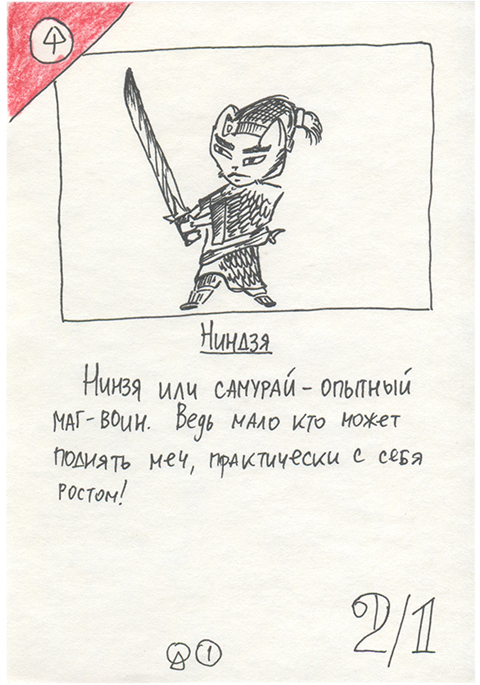 Ниндзя
Нинзя или самурай - опытный
маг-воин. Ведь мало кто может
поднять меч, практически с себя
ростом!
2/1
1